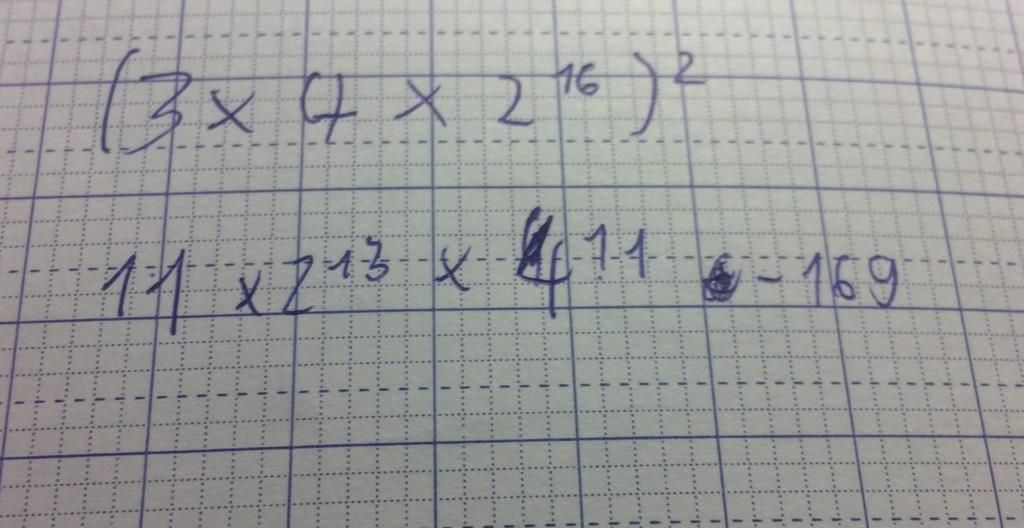 (3 x 7 x 2^16)^2
11 x 2^13 x 4^11 - 169